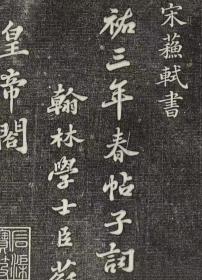 宋蘇軾書
祐三年春帖子詞
翰林學士臣蘇
皇帝閣